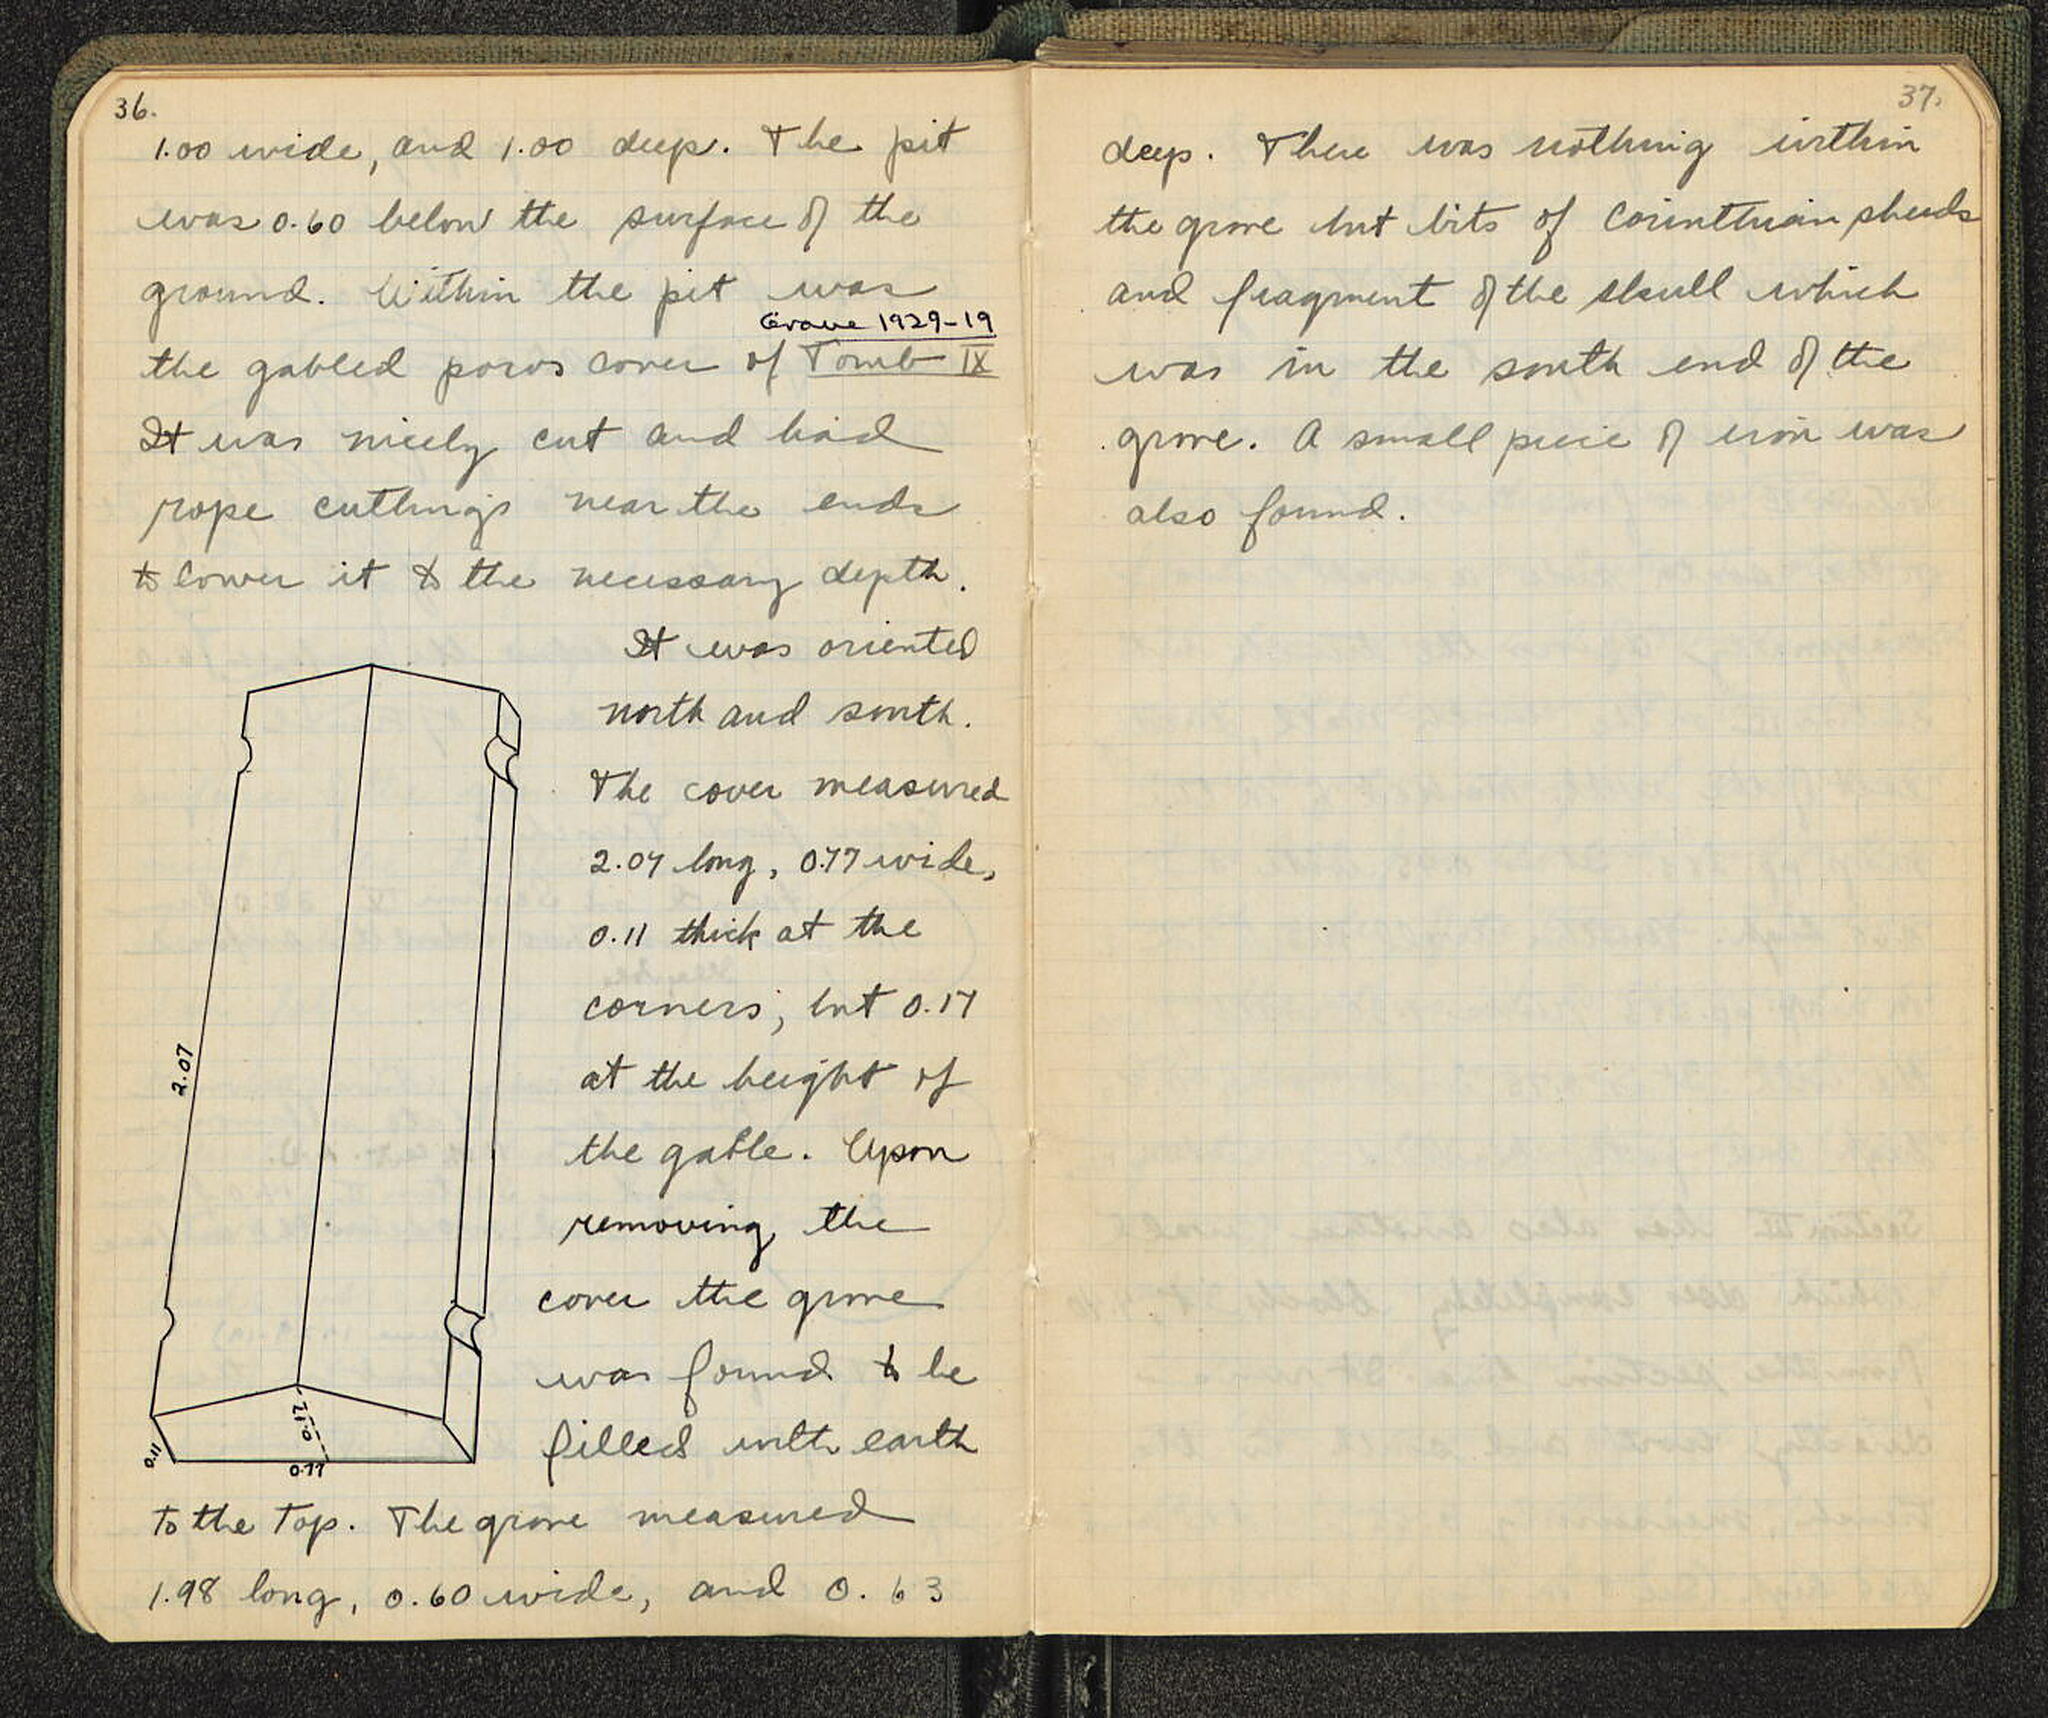 36.
1.00 wide, and 1.00 deep. The pit
was 0.60 below the surface of the
ground. Within the pit was
Grave 1929-19
the gabled poros cover of Tomb IX
It was nicely cut and had
rope cuttings near the ends
to lower it to the necessary depth.
It was oriented
north and south.
The cover measured
2.07 long, 0.77 wide,
0.11 thick at the
corners, but 0.17
at the height of
the gable. Upon
removing the
cover the grave
was found to be
filled with earth
to the top. The grave measured
1.98 long, 0.60 wide, and 0.63
2.07
0.11
0.17
0.77
37.
deep. There was nothing within
the grave but bits of Corinthian sherds
and fragment of the skull which
was in the south end of the
grave. A small piece of iron was
also found.